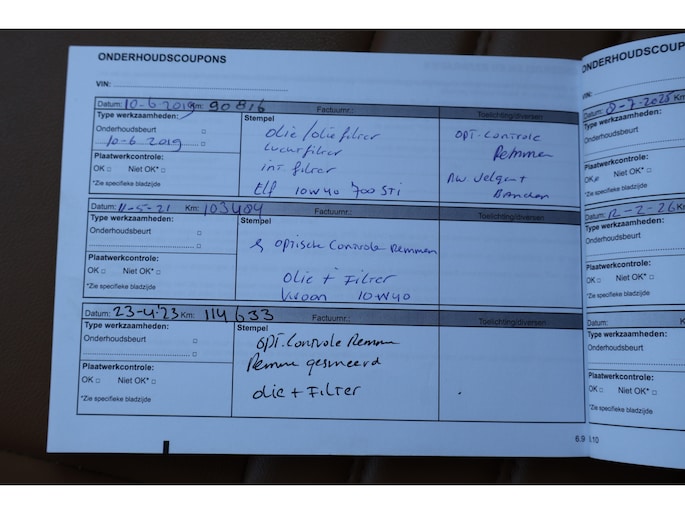 ONDERHOUDSCOUPONS
VIN:
Datum: 10-6 2019 Km: 90816 Factuurnr.: Toelichting/diversen
Type werkzaamheden:
Onderhoudsbeurt
10-6 2019
Plaatwerkcontrole:
OK Niet OK*
*Zie specifieke bladzijde
Stempel
olie/oliefilter
Luchtfilter
int. filter
Elf 10W40 700 STi
OPT-Controle
Remmen
RW velgen
Banden
Datum: 11-5-21 Km: 103484 Factuurnr.: Toelichting/diversen
Type werkzaamheden:
Plaatwerkcontrole:
OK Niet OK*
*Zie specifieke bladzijde
Stempel
optische Controle Remmen
olie + Filter
10-W40
Datum: 23-4-'23 Km: 114633 Factuurnr.: Toelichting/diversen
Type werkzaamheden:
Onderhoudsbeurt
Plaatwerkcontrole:
OK Niet OK*
*Zie specifieke bladzijde
Stempel
OPT-Controle Remmen
Remmen gesmeerd
olie + Filter
6.9
ONDERHOUDSCOUP
VIN:
Datum: 8-7-2025 Km
Type werkzaamheden:
Onderhoudsbeurt
Plaatwerkcontrole:
OK Niet OK*
*Zie specifieke bladzijde
Datum: 12-2-26 Km
Type werkzaamheden:
Onderhoudsbeurt
Plaatwerkcontrole:
OK Niet OK*
*Zie specifieke bladzijde
Datum: K
Type werkzaamheden:
Onderhoudsbeurt
Plaatwerkcontrole:
OK Niet OK*
*Zie specifieke bladzijde
6.10